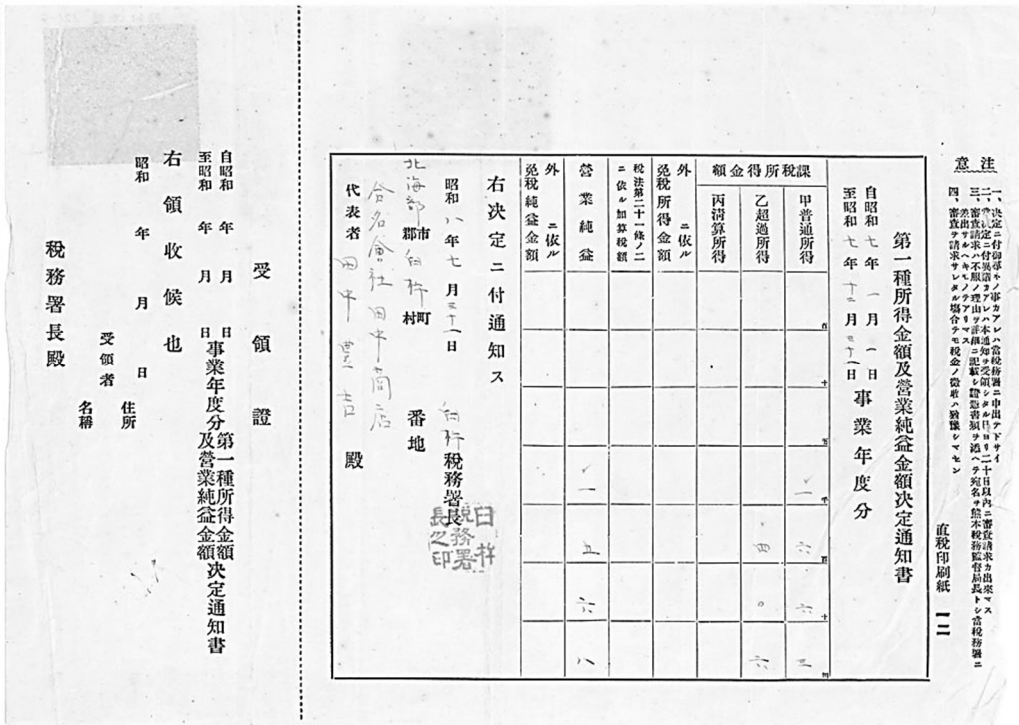 注意
一、決定ニ付御尋ネノ事カアレハ當税務署ニ申出テ下サイ
二、本決定ニ付異議カアレハ本通知ヲ受領シタル日ヨリ二十日以内ニ審査請求カ出來マス
三、審査請求ハ不服ノ理由ヲ詳細ニ記載シ證憑書類ヲ添ヘテ宛名ヲ熊本税務監督局長トシ當税務署ニ
差出サルヘキモノテアリマス
四、審査ヲ請求サレタル塲合テモ税金ノ徴收ハ猶豫シマセン
直税印刷紙 一二
第一種所得金額及營業純益金額決定通知書
自昭和七年一月一日
至昭和七年十二月三十一日
事業年度分
課税所得金額
甲普通所得
百 十 万 千 百 十 円
一 六 六 三
乙超過所得
四 〇 六
丙清算所得
外 ニ依ル
免税所得金額
税法第二十一條ノ二
ニ依ル加算税額
營業純益
一 五 六 八
外 ニ依ル
免税純益金額
右決定ニ付通知ス
昭和八年七月三十一日
臼杵税務署長
臼杵税務署長之印
北海部 市郡 臼杵 町村 番地
合名會社田中商店
代表者 田中豊吉 殿
受領證
自昭和 年 月 日
至昭和 年 月 日
事業年度分
第一種所得金額
及營業純益金額
決定通知書
右領收候也
昭和 年 月 日
住所
受領者
名稱
税務署長殿